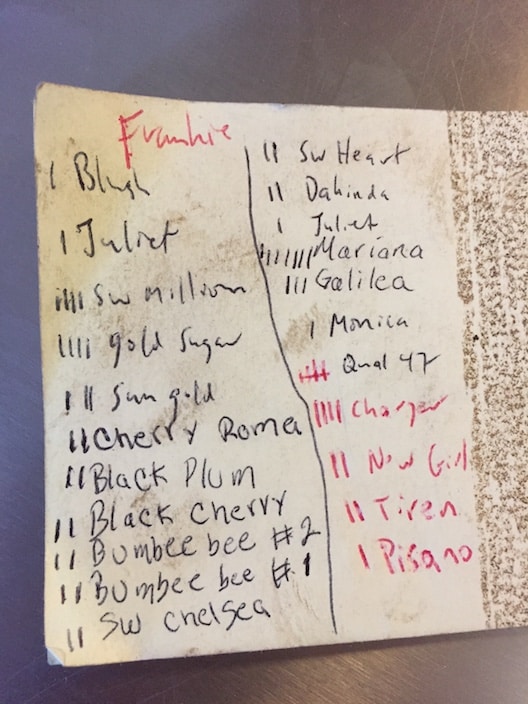 Frankie
I Blush
I Juliet
IIII SW million
IIII gold Sugar
III Sun gold
II Cherry Roma
II Black Plum
II Black Cherry
II Bumbee bee #2
II Bumbee bee #1
II SW Chelsea
II SW Heart
II Dahinda
I Juliet
Mariana
III Galilea
I Monica
Qual 47
IIII Charger
II New Girl
II Tiren
I Pisano